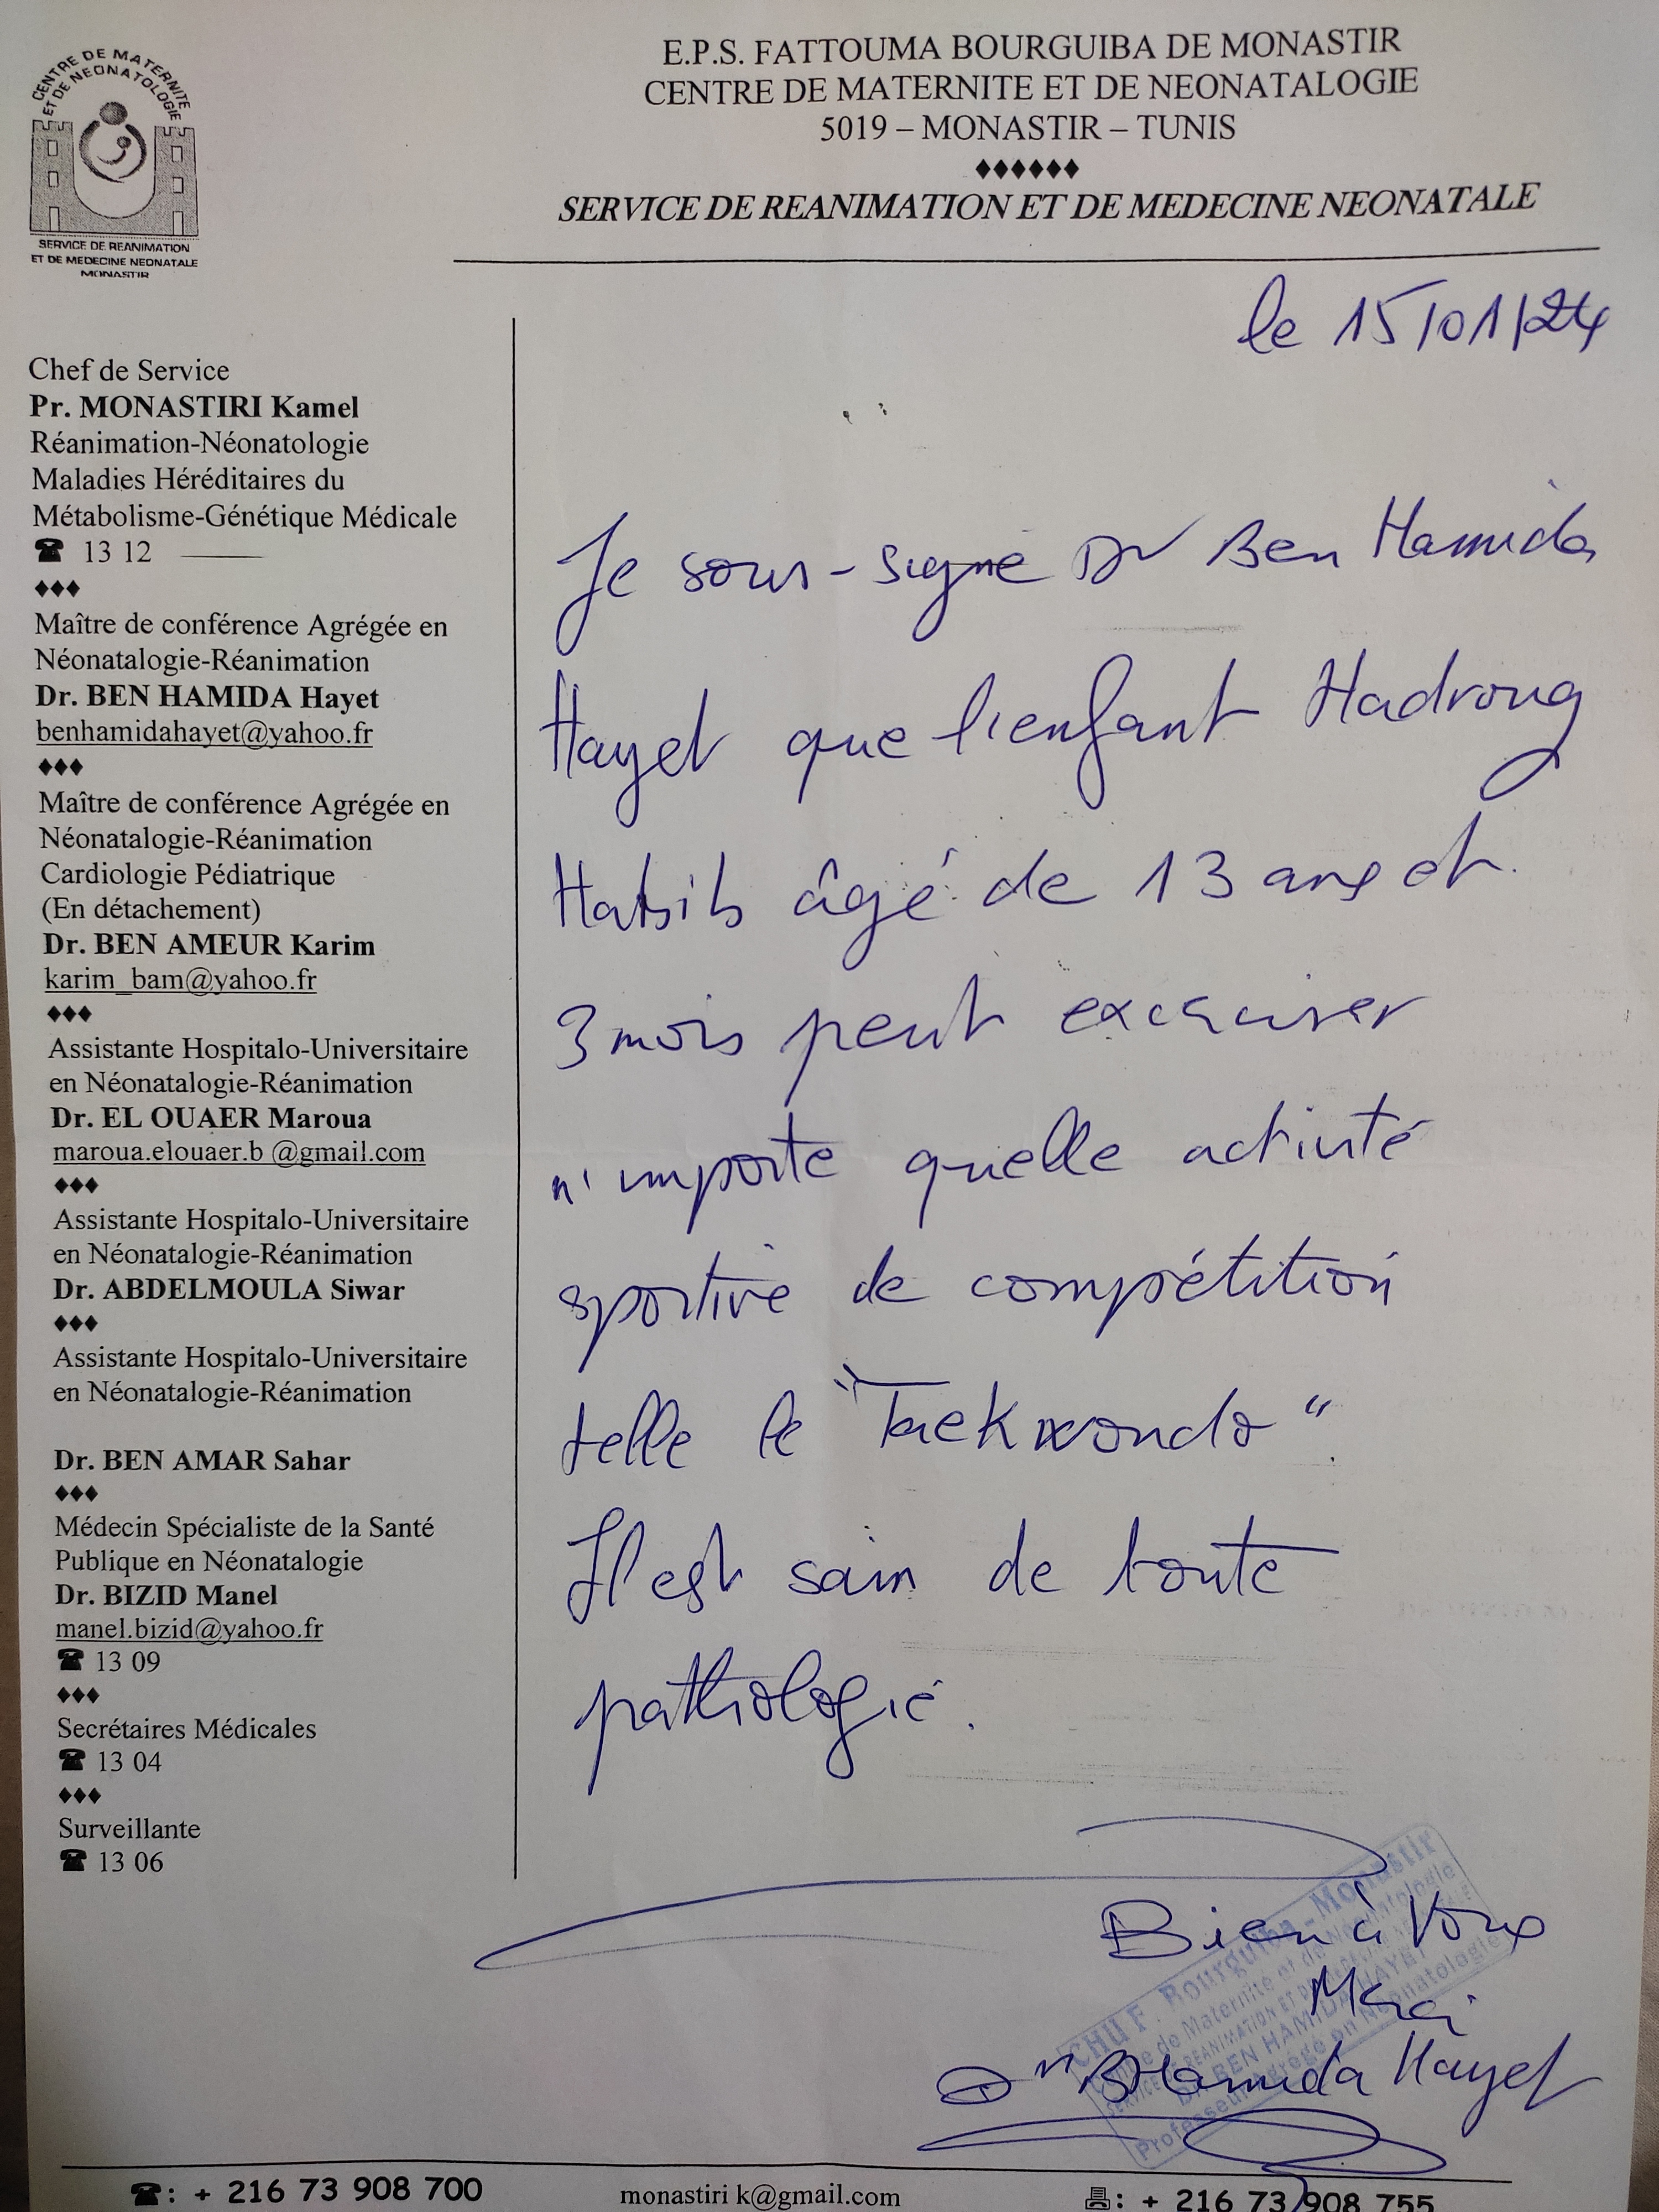 CENTRE DE MATERNITE
ET DE NEONATOLOGIE
SERVICE DE REANIMATION
ET DE MEDECINE NEONATALE
MONASTIR
E.P.S. FATTOUMA BOURGUIBA DE MONASTIR
CENTRE DE MATERNITE ET DE NEONATALOGIE
5019 – MONASTIR – TUNIS
♦♦♦♦♦♦
SERVICE DE REANIMATION ET DE MEDECINE NEONATALE
Chef de Service
Pr. MONASTIRI Kamel
Réanimation-Néonatologie
Maladies Héréditaires du
Métabolisme-Génétique Médicale
☎ 13 12
♦♦♦
Maître de conférence Agrégée en
Néonatalogie-Réanimation
Dr. BEN HAMIDA Hayet
benhamidahayet@yahoo.fr
♦♦♦
Maître de conférence Agrégée en
Néonatalogie-Réanimation
Cardiologie Pédiatrique
(En détachement)
Dr. BEN AMEUR Karim
karim_bam@yahoo.fr
♦♦♦
Assistante Hospitalo-Universitaire
en Néonatalogie-Réanimation
Dr. EL OUAER Maroua
maroua.elouaer.b @gmail.com
♦♦♦
Assistante Hospitalo-Universitaire
en Néonatalogie-Réanimation
Dr. ABDELMOULA Siwar
♦♦♦
Assistante Hospitalo-Universitaire
en Néonatalogie-Réanimation
Dr. BEN AMAR Sahar
♦♦♦
Médecin Spécialiste de la Santé
Publique en Néonatalogie
Dr. BIZID Manel
manel.bizid@yahoo.fr
☎ 13 09
♦♦♦
Secrétaires Médicales
☎ 13 04
♦♦♦
Surveillante
☎ 13 06
le 15/01/24
Je sous-signé Dr Ben Hamida
Hayet que l'enfant Hadroug
Habib âgé de 13 ans et
3 mois peut
n'importe quelle activité
sportive de compétition
telle le "Taekwondo".
Il est sain de toute
pathologie.
Bien à vous
Merci
Dr B Hamida Hayet
CHU F. Bourguiba - Monastir
Centre de Maternité et de Néonatologie
SERVICE DE REANIMATION ET DE MEDECINE NEONATALE
Dr BEN HAMIDA HAYET
Professeur Agrégé en Néonatologie
☎: + 216 73 908 700
monastiri k@gmail.com
: + 216 73 908 755